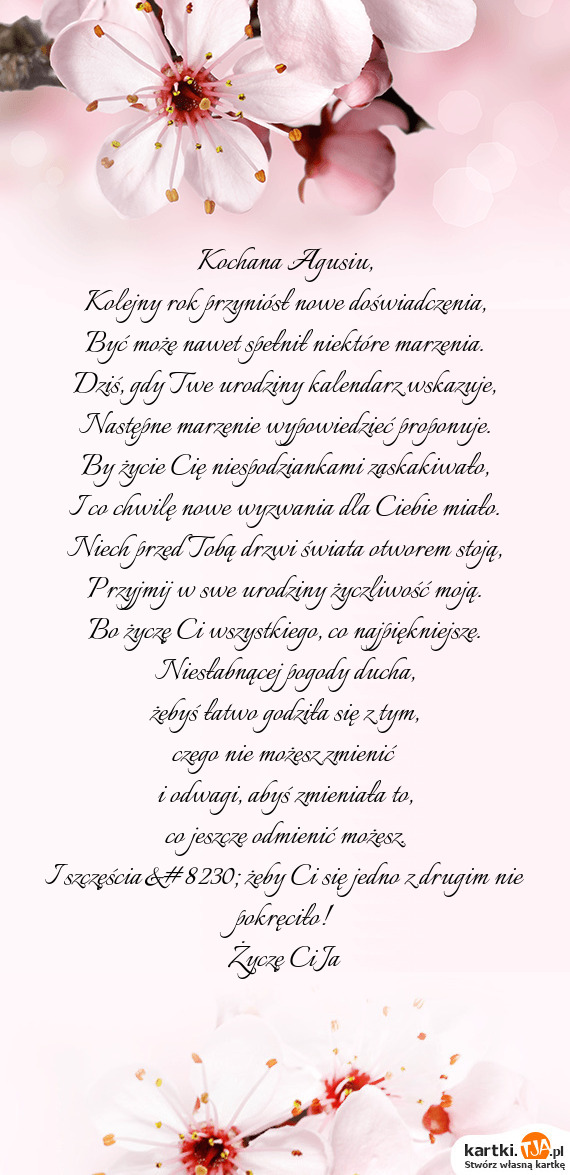 Kochana Agusiu,
Kolejny rok przyniósł nowe doświadczenia,
Być może nawet spełnił niektóre marzenia.
Dziś, gdy Twe urodziny kalendarz wskazuje,
Następne marzenie wypowiedzieć proponuje.
By życie Cię niespodziankami zaskakiwało,
I co chwilę nowe wyzwania dla Ciebie miało.
Niech przed Tobą drzwi świata otworem stoją,
Przyjmij w swe urodziny życzliwość moją.
Bo życzę Ci wszystkiego, co najpiękniejsze.
Niesłabnącej pogody ducha,
żebyś łatwo godziła się z tym,
czego nie możesz zmienić
i odwagi, abyś zmieniała to,
co jeszcze odmienić możesz.
I szczęścia &# 8230; żeby Ci się jedno z drugim nie
pokręciło!
Życzę Ci Ja
kartki.TJA.pl
Stwórz własną kartkę